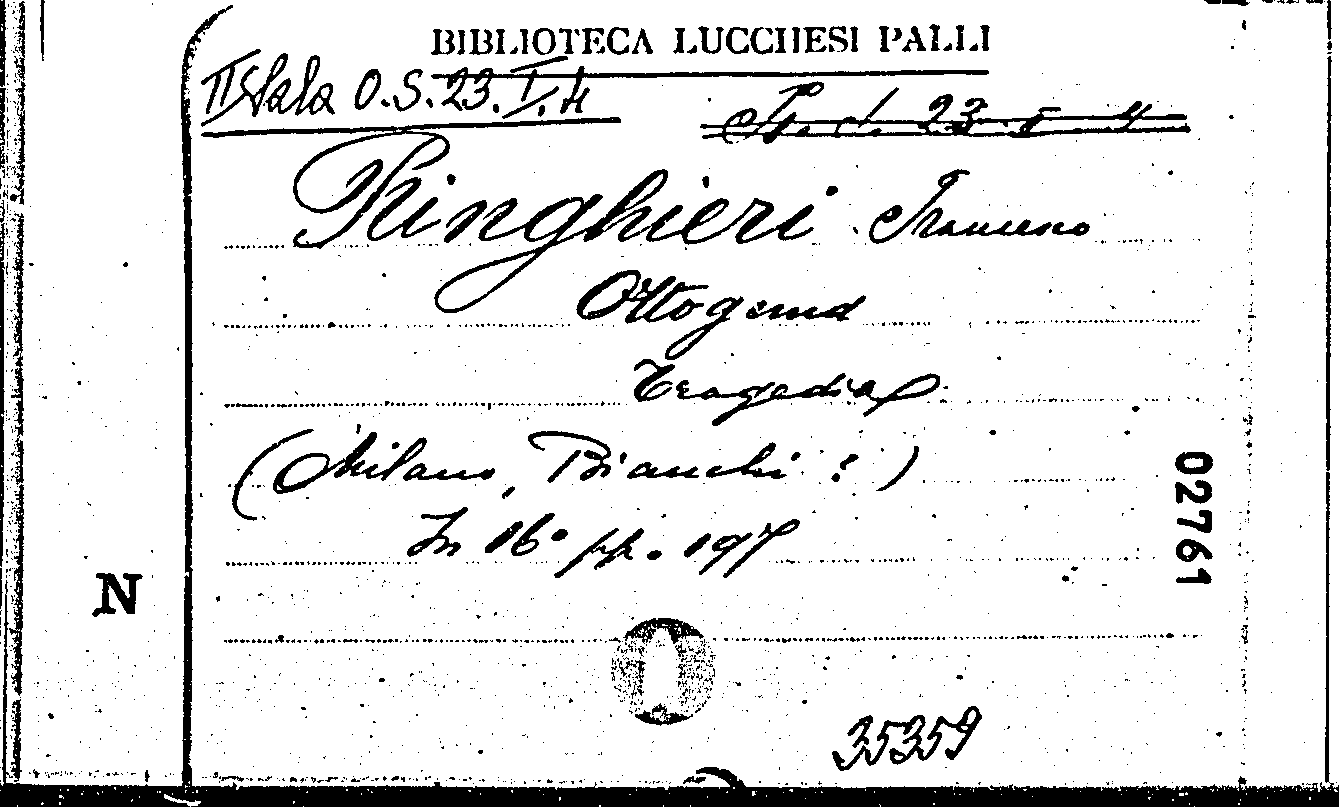 BIBLIOTECA LUCCHESI PALLI
II Sala O.S.23.I.4
23 I 4
Ringhieri Francesco
Ottogamo
Tragedia
(Milano, Bianchi ? )
In 16° pp. 197
02761
N
35359